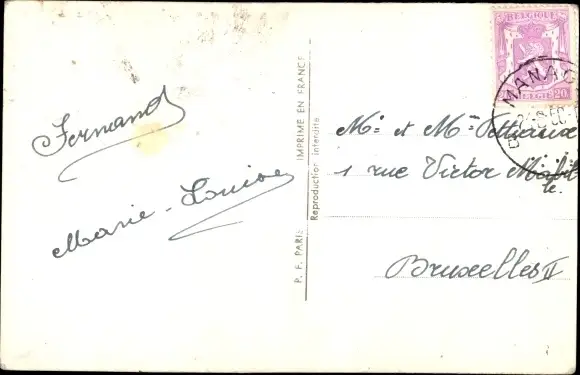 Fernand
Marie-Louise
P. F. PARIS IMPRIME EN FRANCE
Reproduction interdite
BELGIQUE
BELGIË 20
MANAG
Mr et Me
1 rue Victor
Bruxelles II